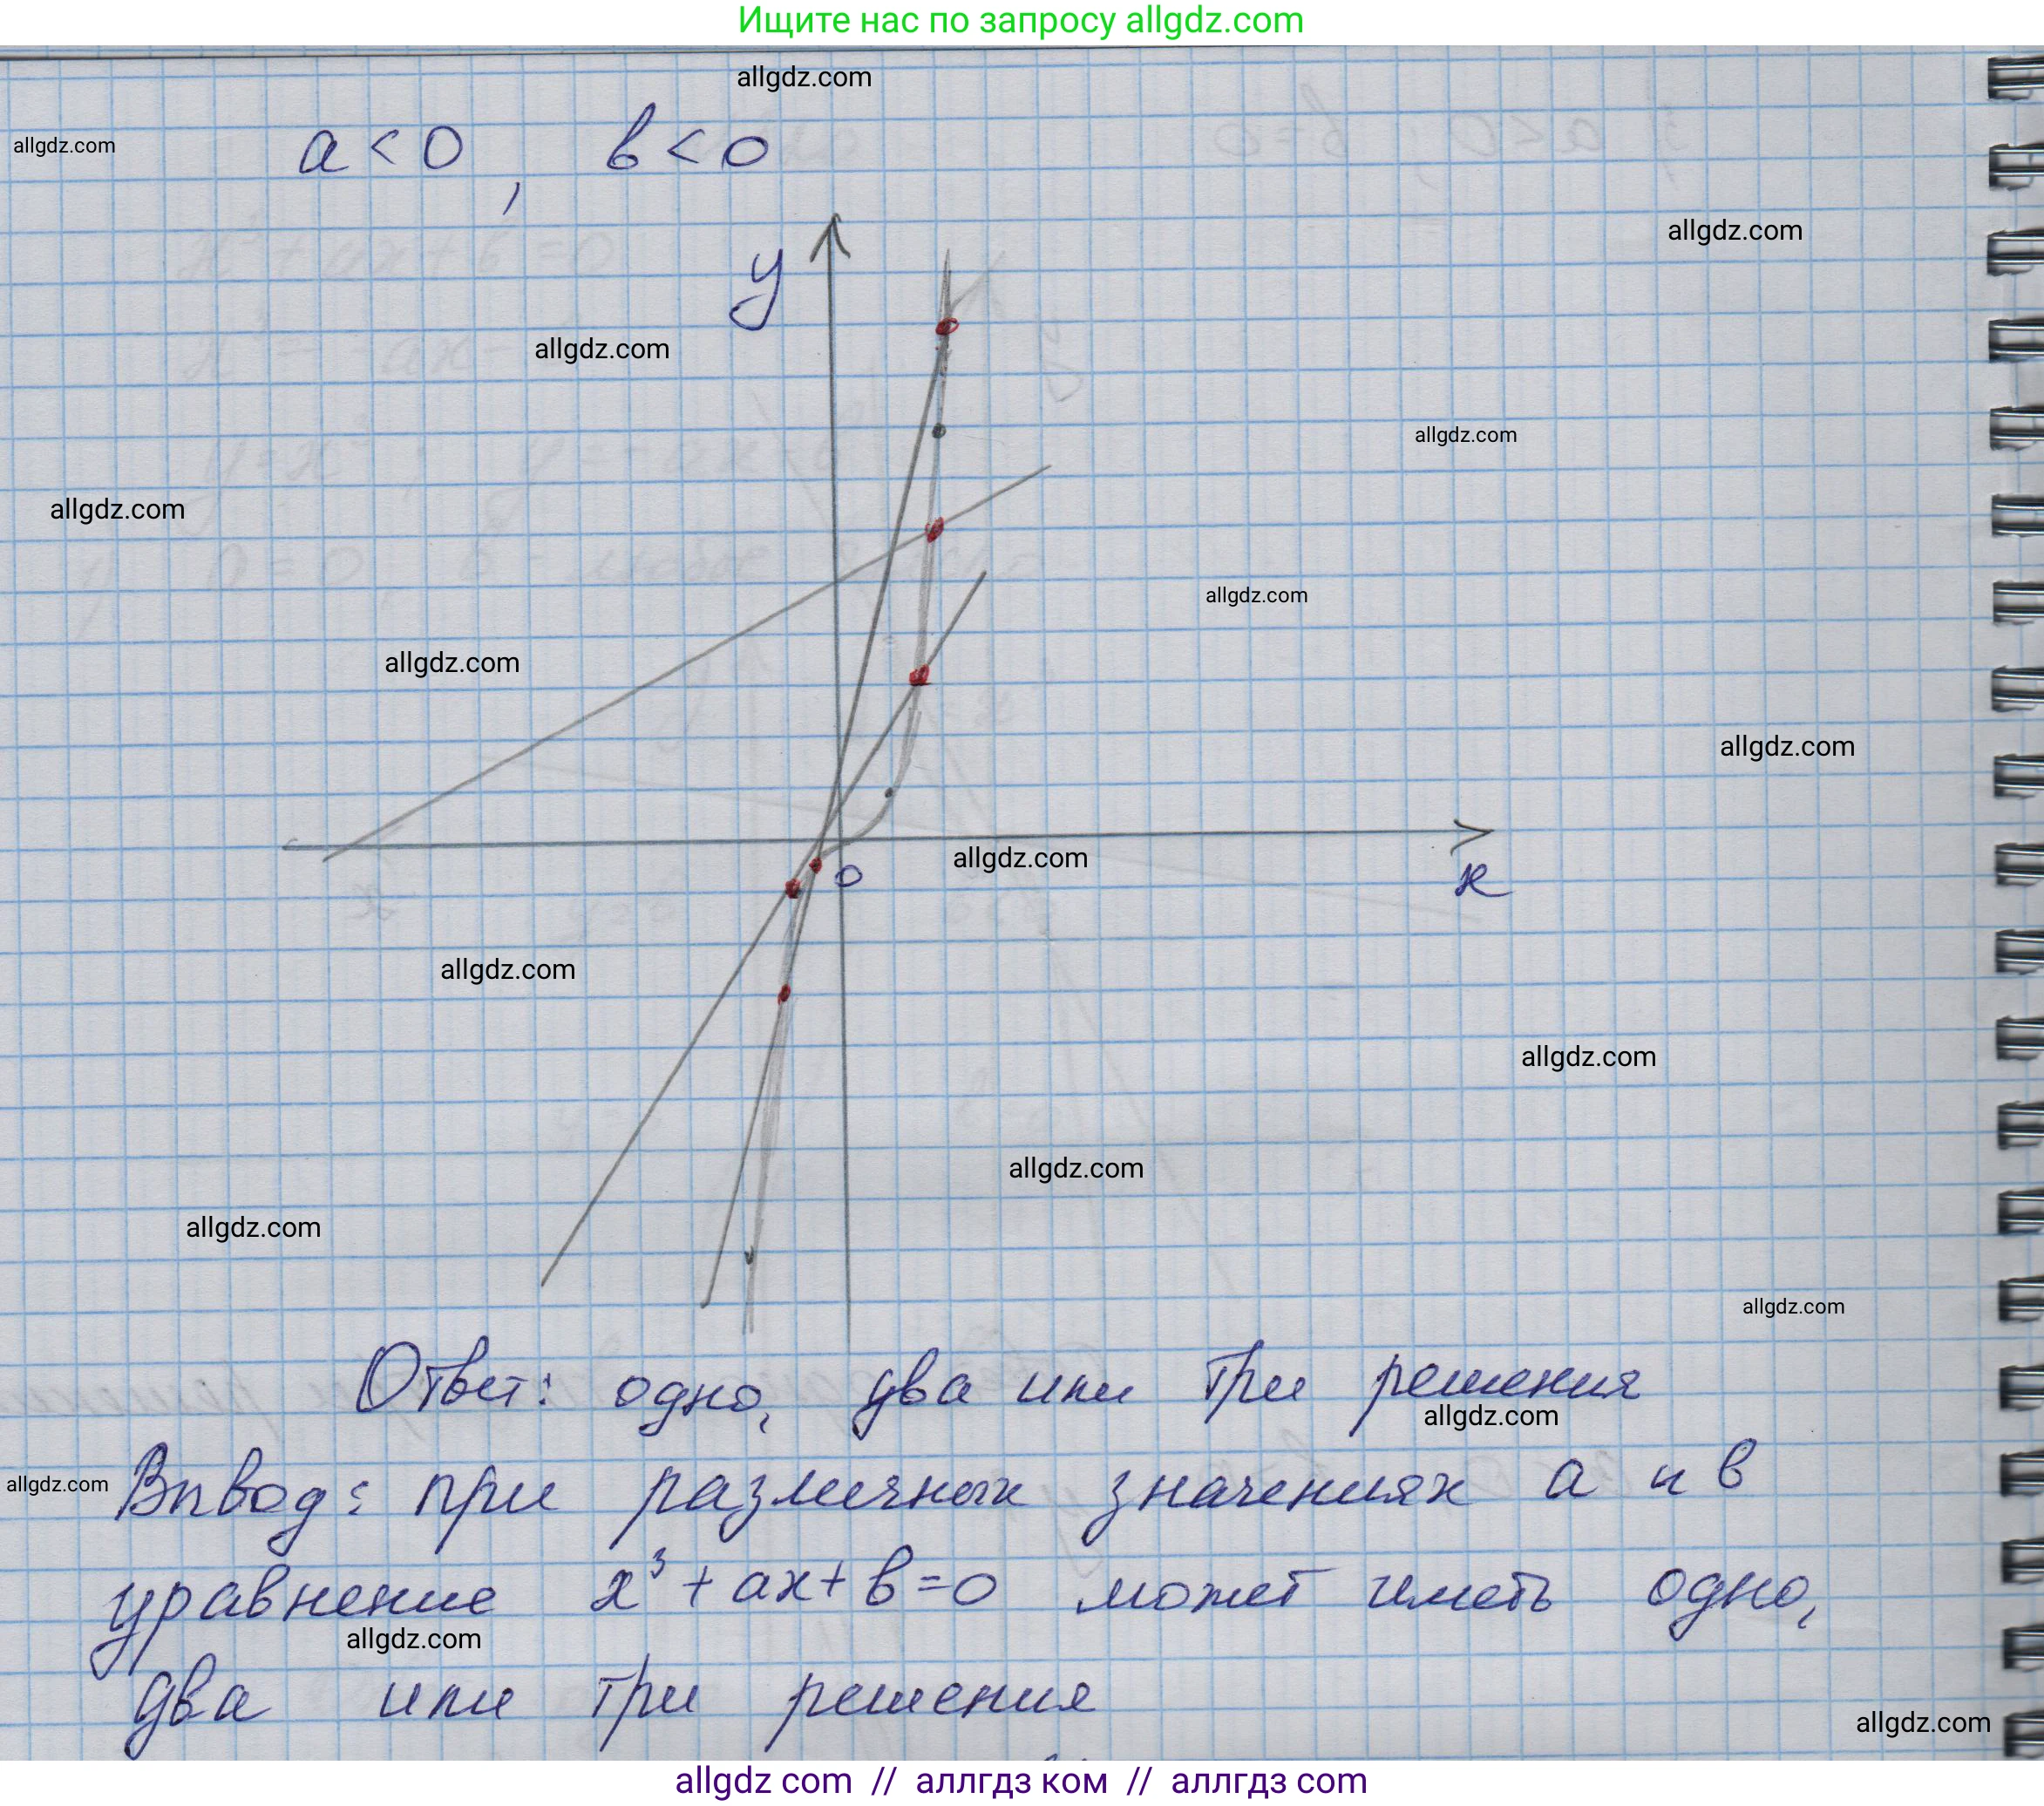 Ищите нас по запросу allgdz.com
allgdz.com
a < 0, в < 0
allgdz.com
allgdz.com
y
allgdz.com
allgdz.com
allgdz.com
allgdz.com
allgdz.com
allgdz.com
allgdz.com
0
x
allgdz.com
allgdz.com
allgdz.com
allgdz.com
allgdz.com
Ответ: одно, два или три решения
allgdz.com
allgdz.com
Вывод: при различных значениях a и в
уравнение x³ + ax + в = 0 может иметь одно,
allgdz.com
два или три решения
allgdz.com
allgdz com // аллгдз ком // аллгдз com